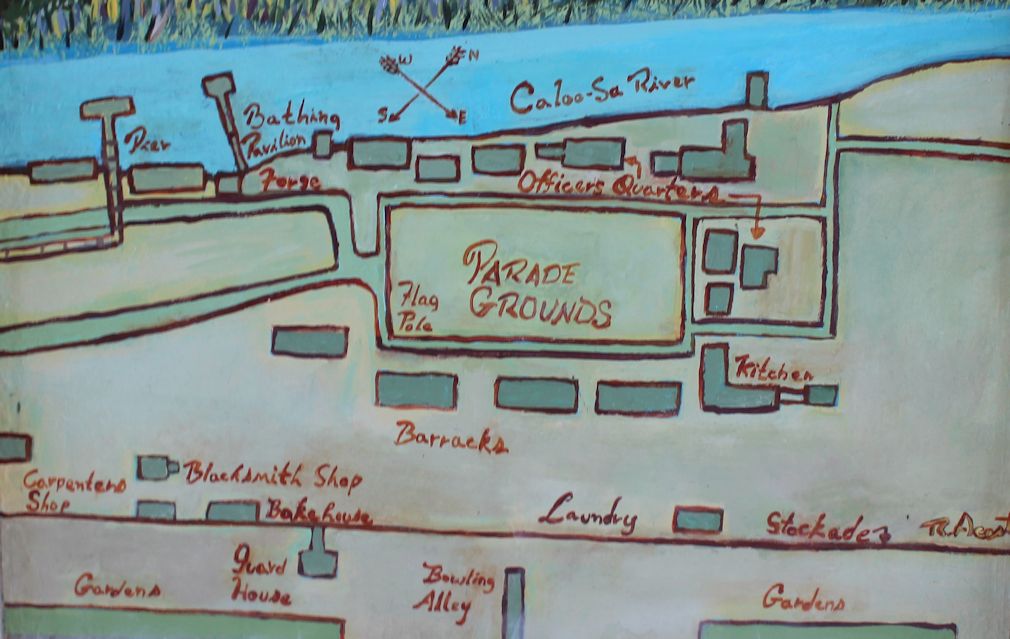 W
N
S
E
Caloo-Sa River
Bathing
Pavilion
Pier
Forge
Officers Quarters
Parade
Grounds
Flag
Pole
Kitchen
Barracks
Carpenters
Shop
Blacksmith Shop
Bakehouse
Laundry
Stockades
Guard
House
Bowling
Alley
Gardens
Gardens